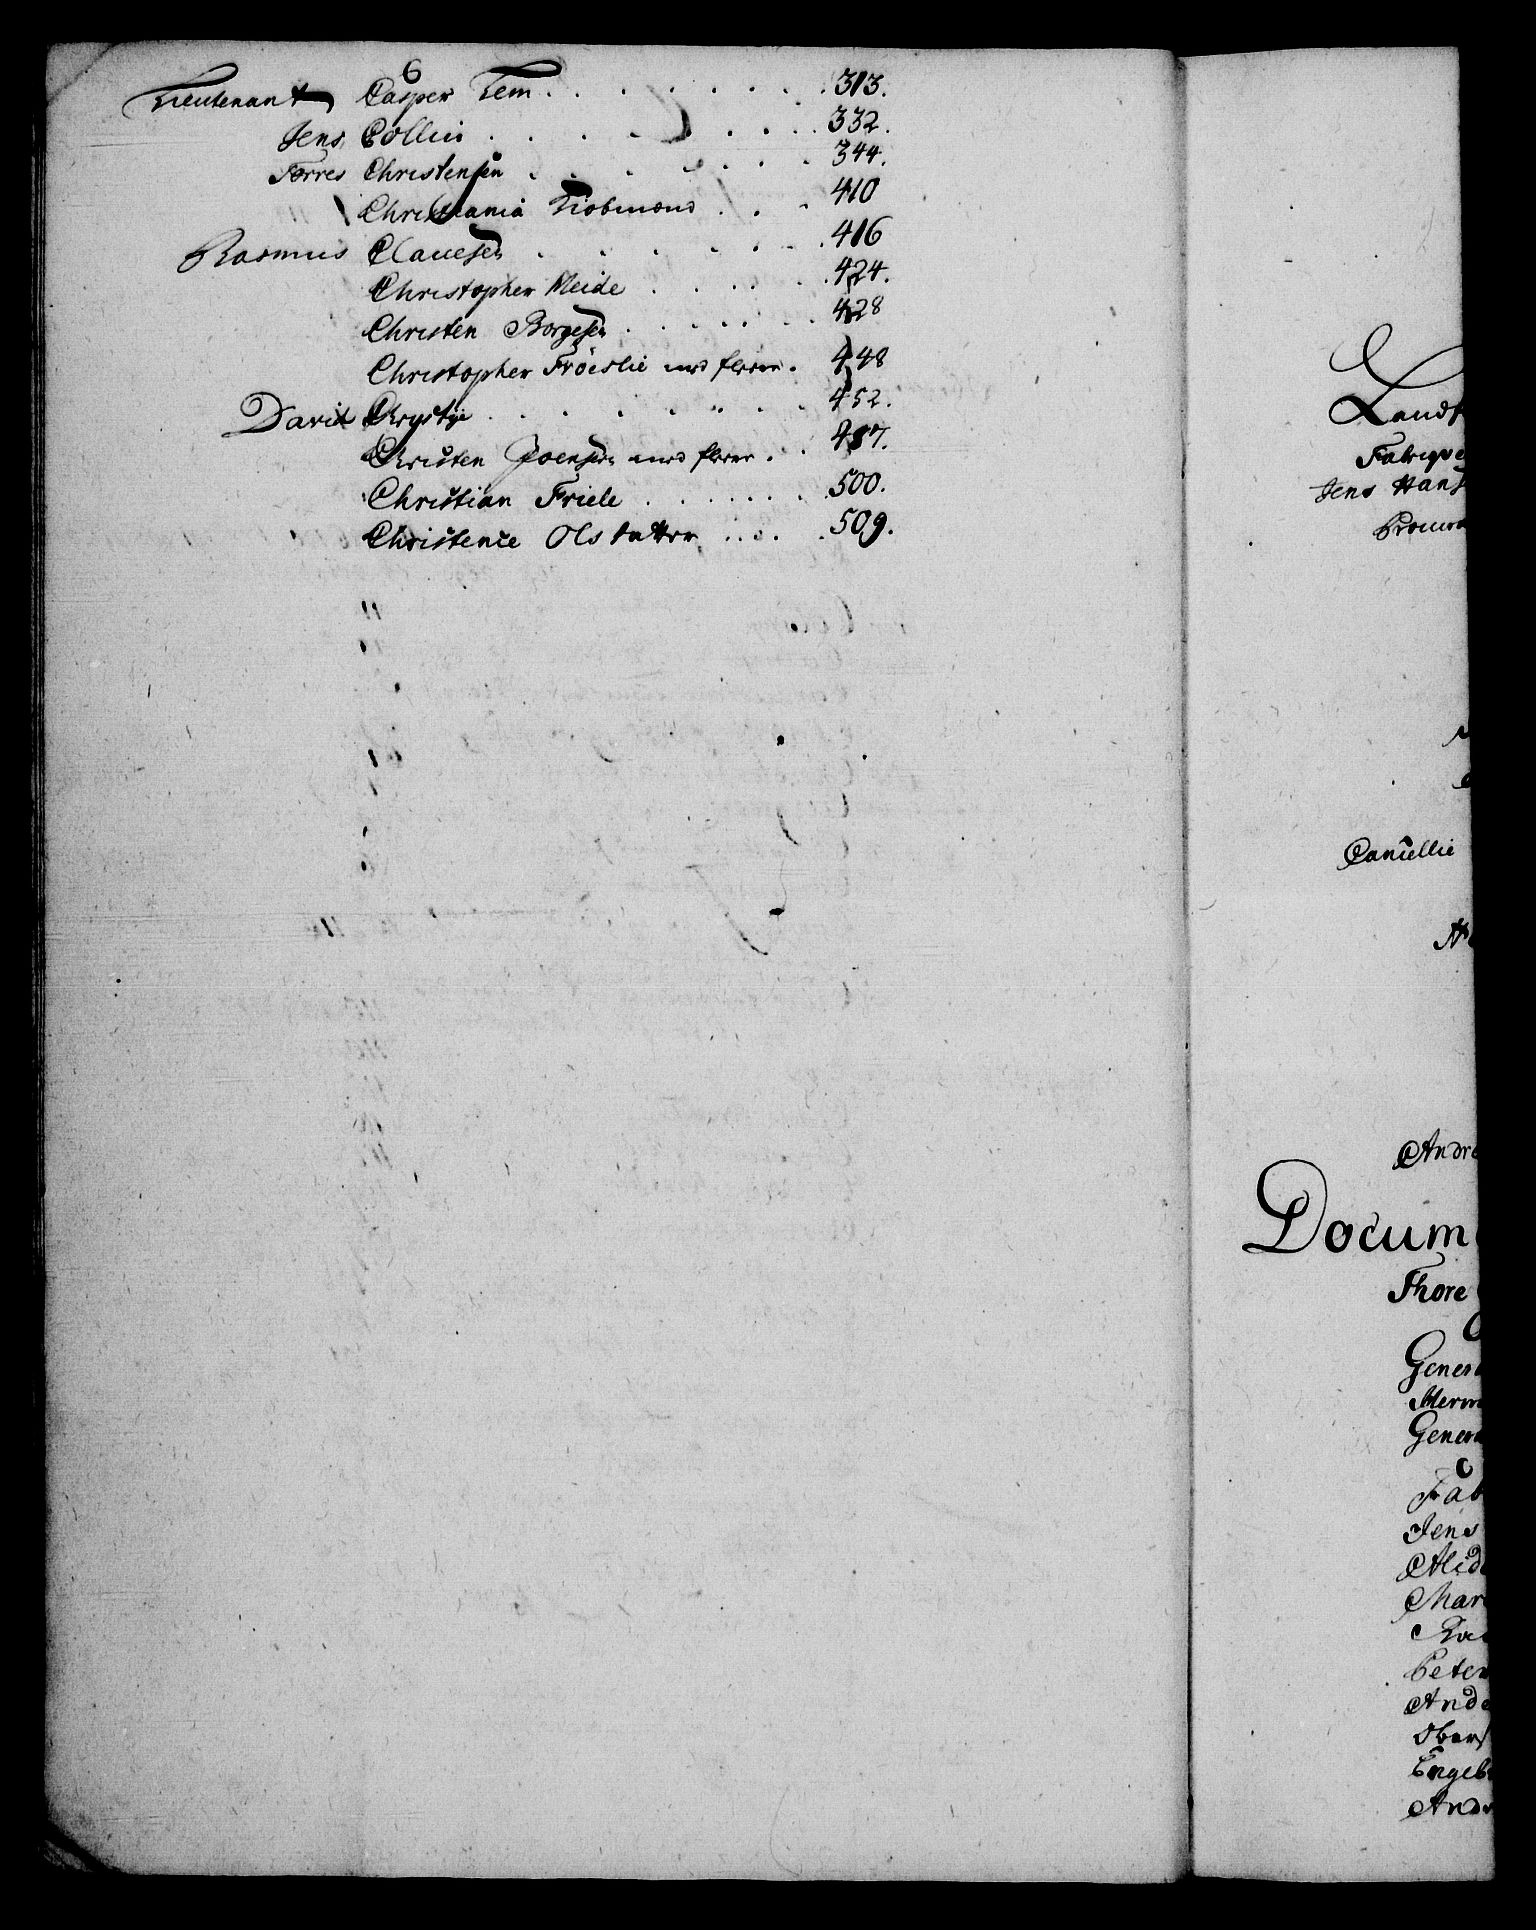 Lieutenant Casper Lem . . . . . . . 313.
Jens Collin . . . . . . . 332.
Torres Christensen . . . . . . 344.
Christiania Kiobmænd . . . 410
Rasmus Clauesen . . . . . . . 416
Christopher Meide . . . . . 424.
Christen Borgesen . . . . . 428
Christopher Fröislie med flerre . 448
David Chrystje . . . . . . . 452.
Christen Joensen med flerre . . 487.
Christian Friele . . . . . . . 500.
Christence Olsdatter . . . . . 509.
Fabriqve
Jens Hans
Cancellie
Andre
Docum
Thore
Genera
Genera
Fab
Jens
Mar
Peter
Ande
Ober
Engeb
And